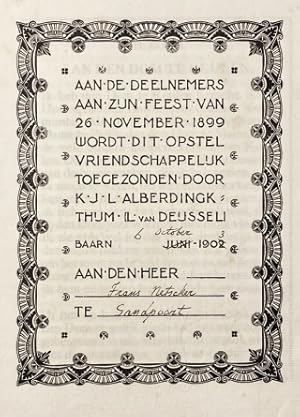 AAN·DE·DEELNEMERS
AAN·ZIJN·FEEST·VAN
26·NOVEMBER·1899
WORDT·DIT·OPSTEL
VRIENDSCHAPPELIJK
TOEGEZONDEN·DOOR
K·J·L·ALBERDINGK·
THIJM·(L·VAN DEIJSSEL)
6 October 3
BAARN JUNI·1902
AAN·DEN·HEER
Frans Netscher
TE Sandpoort